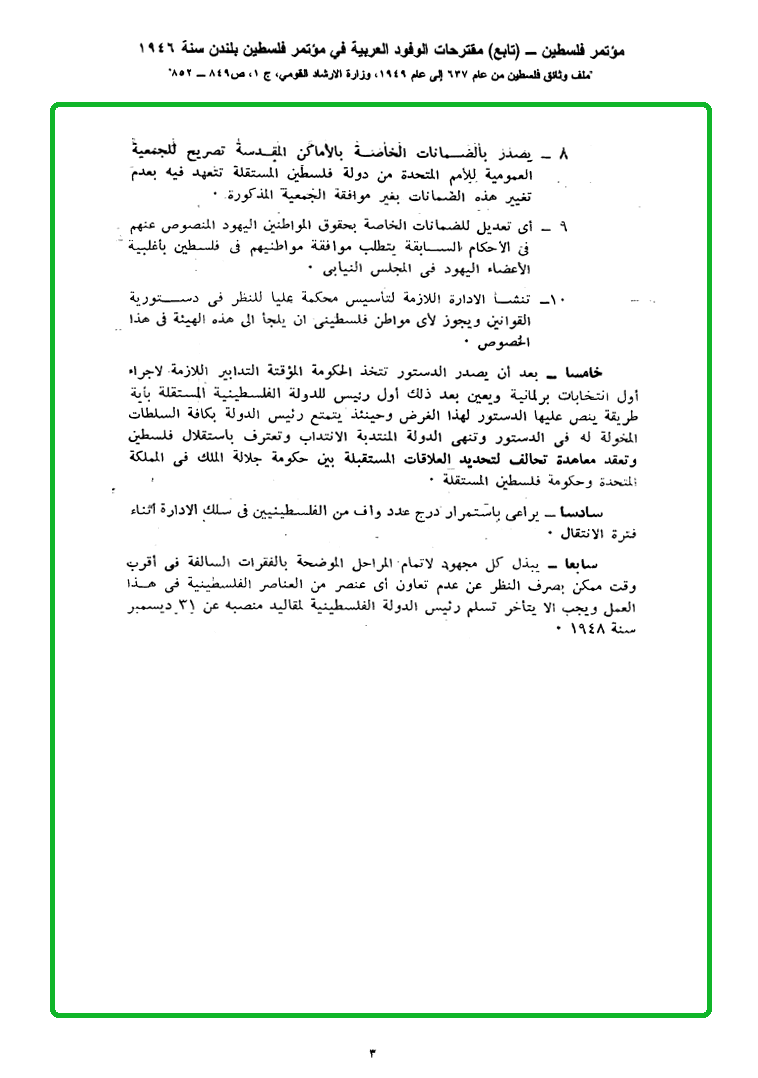 مؤتمر فلسطين ــ (تابع) مقترحات الوفود العربية في مؤتمر فلسطين بلندن سنة ١٩٤٦
"ملف وثائق فلسطين من عام ٦٣٧ إلى عام ١٩٤٩، وزارة الارشاد القومي، ج ١، ص٨٤٩ ــ ٨٥٢"
٨ ــ يصدر بالضمانات الخاصة بالأماكن المقدسة تصريح للجمعية
العمومية للأمم المتحدة من دولة فلسطين المستقلة تتعهد فيه بعدم
تغيير هذه الضمانات بغير موافقة الجمعية المذكورة ٠
٩ ــ أى تعديل للضمانات الخاصة بحقوق المواطنين اليهود المنصوص عنهم
فى الأحكام السابقة يتطلب موافقة مواطنيهم فى فلسطين بأغلبية
الأعضاء اليهود فى المجلس النيابى ٠
١٠ــ تنشأ الادارة اللازمة لتأسيس محكمة عليا للنظر فى دستورية
القوانين ويجوز لأى مواطن فلسطينى ان يلجأ الى هذه الهيئة فى هذا
الخصوص ٠
خامسا ــ بعد أن يصدر الدستور تتخذ الحكومة المؤقتة التدابير اللازمة لاجراء
أول انتخابات برلمانية ويعين بعد ذلك أول رئيس للدولة الفلسطينية المستقلة بأية
طريقة ينص عليها الدستور لهذا الغرض وحينئذ يتمتع رئيس الدولة بكافة السلطات
المخولة له فى الدستور وتنهى الدولة المنتدبة الانتداب وتعترف باستقلال فلسطين
وتعقد معاهدة تحالف لتحديد العلاقات المستقبلة بين حكومة جلالة الملك فى المملكة
المتحدة وحكومة فلسطين المستقلة ٠
سادسا ــ يراعى باستمرار درج عدد واف من الفلسطينيين فى سلك الادارة أثناء
فترة الانتقال ٠
سابعا ــ يبذل كل مجهود لاتمام المراحل الموضحة بالفقرات السالفة فى أقرب
وقت ممكن بصرف النظر عن عدم تعاون أى عنصر من العناصر الفلسطينية فى هذا
العمل ويجب الا يتأخر تسلم رئيس الدولة الفلسطينية لمقاليد منصبه عن ٣١ ديسمبر
سنة ١٩٤٨ ٠
٣